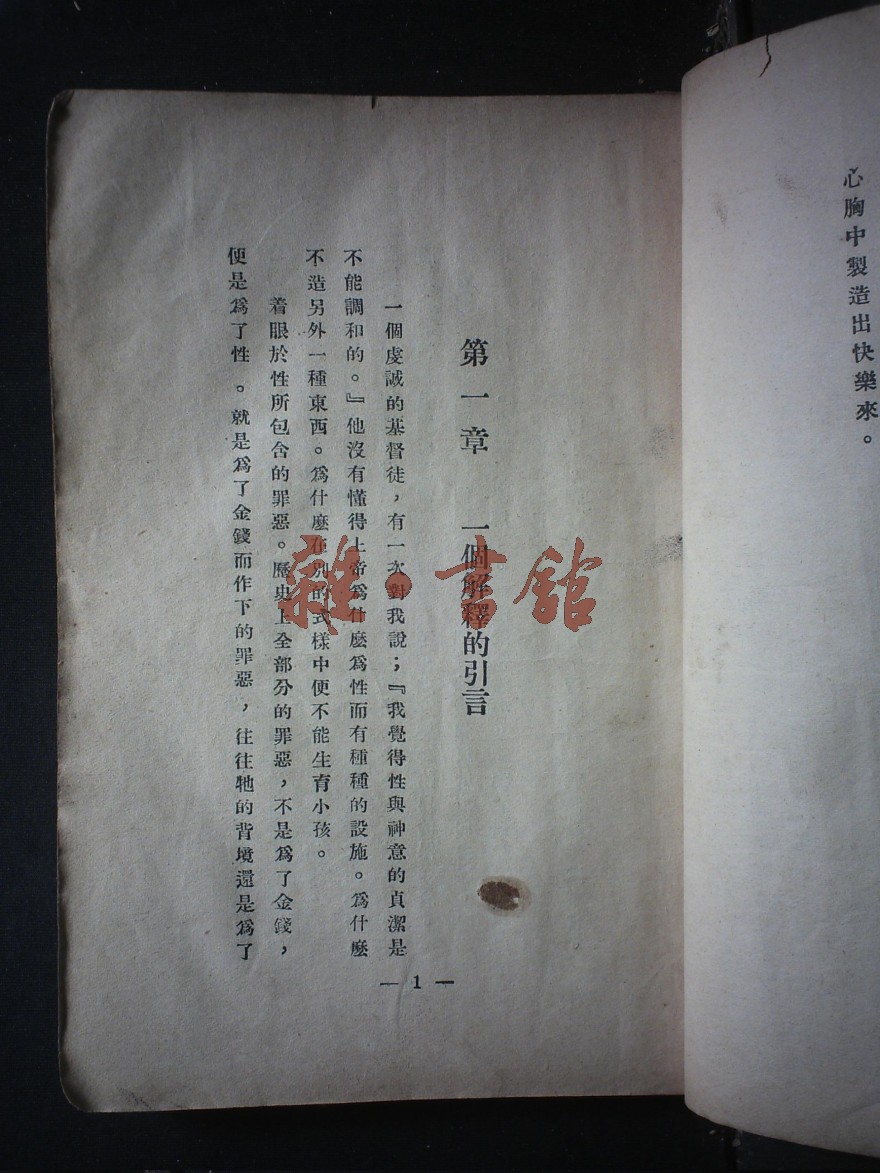 心胸中製造出快樂來。
第一章 一個解釋的引言
一個虔誠的基督徒，有一次對我說；『我覺得性與神意的貞潔是
不能調和的。』他沒有懂得上帝爲什麼爲性而有種種的設施。爲什麼
不造另外一種東西。爲什麼在別的式樣中便不能生育小孩。
着眼於性所包含的罪惡。歷史上全部分的罪惡，不是爲了金錢，
便是爲了性。就是爲了金錢而作下的罪惡，往往牠的背境還是爲了
— 1 —
雜·書館